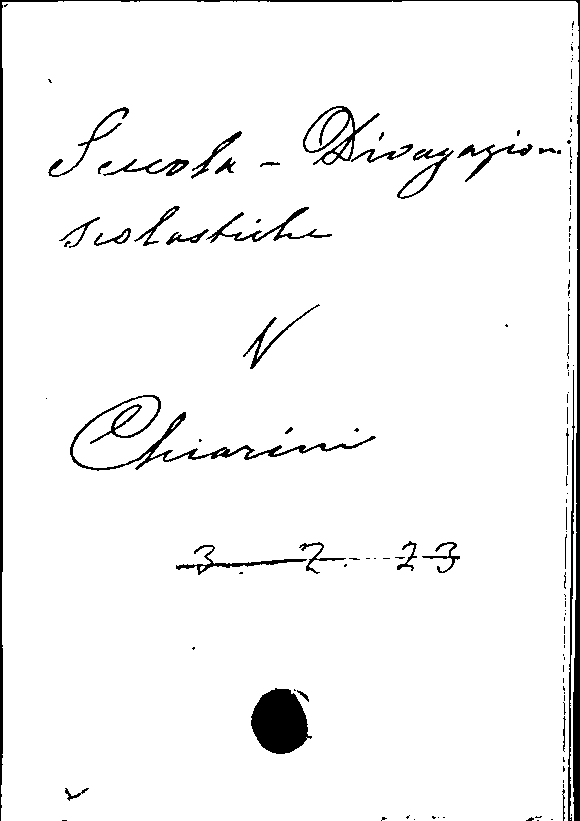 Scuola - Divagazioni
scolastiche
V
Chiarini
3. 2. 23